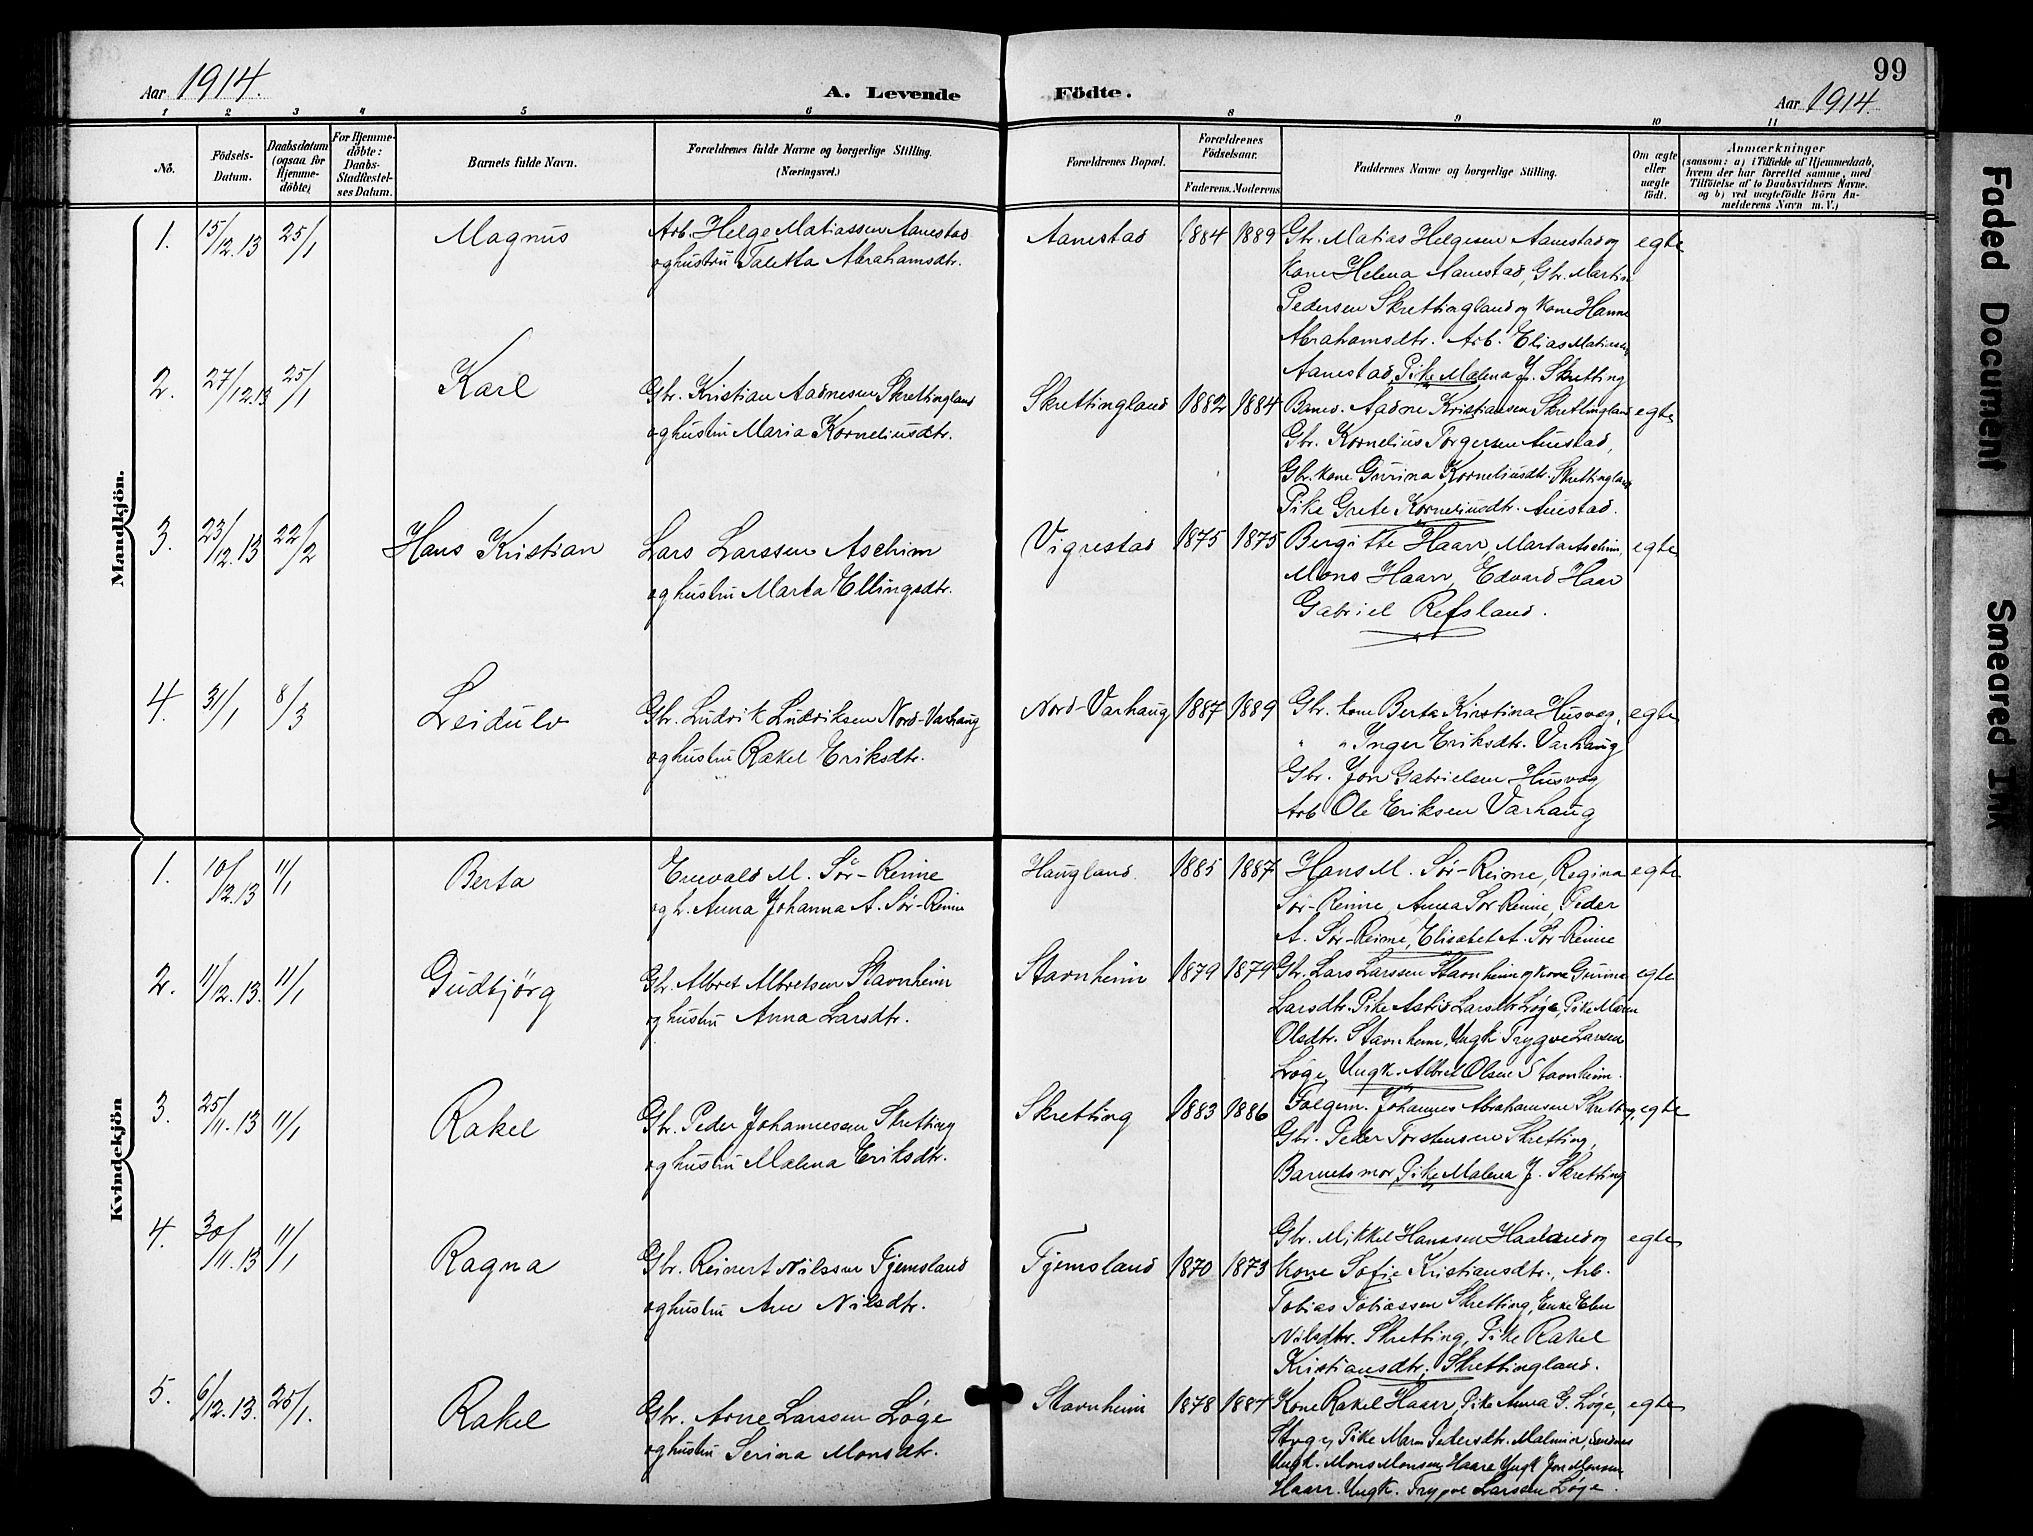 99
Aar 1914. A. Levende Födte. Aar 1914.
1 2 3 4 5 6 8 9 10 11
No.
Födsels-
Datum.
Daabsdatum
(ogsaa for
Hjemme-
döbte)
For Hjemme-
döbte:
Daabs-
Stadfæstel-
ses Datum.
Barnets fulde Navn.
Forældrenes fulde Navne og borgerlige Stilling.
(Næringsvei.)
Forældrenes Bopæl.
Forældrenes
Födselsaar.
Faderens. Moderens.
Faddernes Navne og borgerlige Stilling.
Om ægte
eller
uægte
födt.
Anmærkninger
(saasom: a) i Tilfælde af Hjemmedaab,
hvem der har forrettet samme, med
Tilföielse af to Daabsvidners Navne.
og b) ved uægtefödte Börn An-
melderens Navn m. V.)
Mandkjön.
1. 15/12.13 25/1 Magnus
Arb. Helge Matiassen Aanestad
og hustru Taletta Abrahamsdtr.
Aanestad 1884 1889
Gbr. Matias Helgesen Aanestad og
Kone Helena Aanestad, Gbr. Martin
Pedersen Skrettingland og Kone Hanne
Abrahamsdtr. Arb. Elias Matiassen
Aanestad, Pike Malena J. Skretting
egte
2. 27/12.13 25/1 Karl
Gbr. Kristian Aadnesen Skrettingland
og hustru Maria Korneliusdtr.
Skrettingland 1882 1884
Aadne Kristiansen Skrettingland
Gbr. Kornelius Torgersen Auestad,
Gbr. kone Gurina Korneliusdtr. Skrettingland
Pike Grete Korneliusdtr. Auestad.
egte
3. 23/12.13 22/2 Hans Kristian
Lars Larssen Aschim
og hustru Marta Ellingsdtr.
Vigrestad 1875 1875
Bergitte Haarr, Marta Aschim,
Mons Haarr, Edvard Haar
Gabriel Refsland.
egte
4. 31/1 8/3 Leidulv
Gbr. Ludvik Ludviksen Nord-Varhaug
og hustru Rakel Eriksdtr.
Nord-Varhaug 1887 1889
Gbr. kone Berta Kirstina Husveg,
" " Inger Eriksdtr. Varhaug
Gbr. Jon Gabrielsen Husveg
Arb Ole Eriksen Varhaug
egte
Kvindekjön
1. 10/12.13 11/1 Berta
Enevald M. Sör-Reime
og h. Anna Johanna A. Sör-Reime
Haugland. 1885 1887
Hans M. Sör-Reime, Regina
Sör-Reime, Anna Sör Reime, Peder
A. Sör-Reime, Elisabet A. Sör-Reime
egte
2. 11/12.13. 11/1 Gudbjörg
Gbr. Albret Albretsen Stavnheim
og hustru Anna Larsdtr.
Stavnheim 1879 1879
Gbr. Lars Larssen Stavnheim og kone Gurina
Larsdtr. Pike Astrid Larsdtr Löge, Pike Maren
Olsdtr. Stavnheim, Ungk Trygve Larsen
Löge, Ungk. Albret Olsen Stavnheim.
egte
3. 25/11.13 11/1 Rakel
Gbr. Peder Johannessen Skretting
og hustru Malena Eriksdtr.
Skretting 1883 1886
Folgem. Johannes Abrahamsen Skretting,
Gbr. Peder Torstensen Skretting,
Barnets mor, Pike Malena J. Skretting
egte
4. 30/11.13 11/1 Ragna
Gbr. Reinert Nilssen Tjemsland
og hustru Ane Nilsdtr.
Tjemsland 1870 1873
Gbr. Mikkel Hanssen Haaland og
Kone Sofie Kristiansdtr., Arb.
Tobias Tobiassen Skretting, Enke Elen
Nilsdtr. Skretting, Pike Rakel
Kristiansdtr. Skrettingland.
egte
5. 6/12.13. 25/1. Rakel
Gbr. Arne Larssen Löge
og hustru Serina Monsdtr.
Stavnheim 1878 1887
Kone Rakel Haarr, Pike Anna G. Löge,
Pike Maren Pedersdtr. Malmin,
Ungk. Mons Monsen Haare Ungk Jon Monsen
Haarr. Ungk. Trygve Larssen Löge.
egte
Faded Document
Smeared Ink